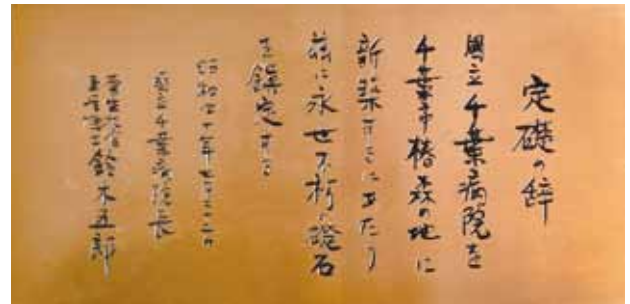 定礎の辞
国立千葉病院を
千葉市椿森の地に
新築するにあたり
茲に永世不朽の礎石
を鎮定する
昭和四十年七月二二日
国立千葉病院長
厚生技官
医学博士 鈴木五郎